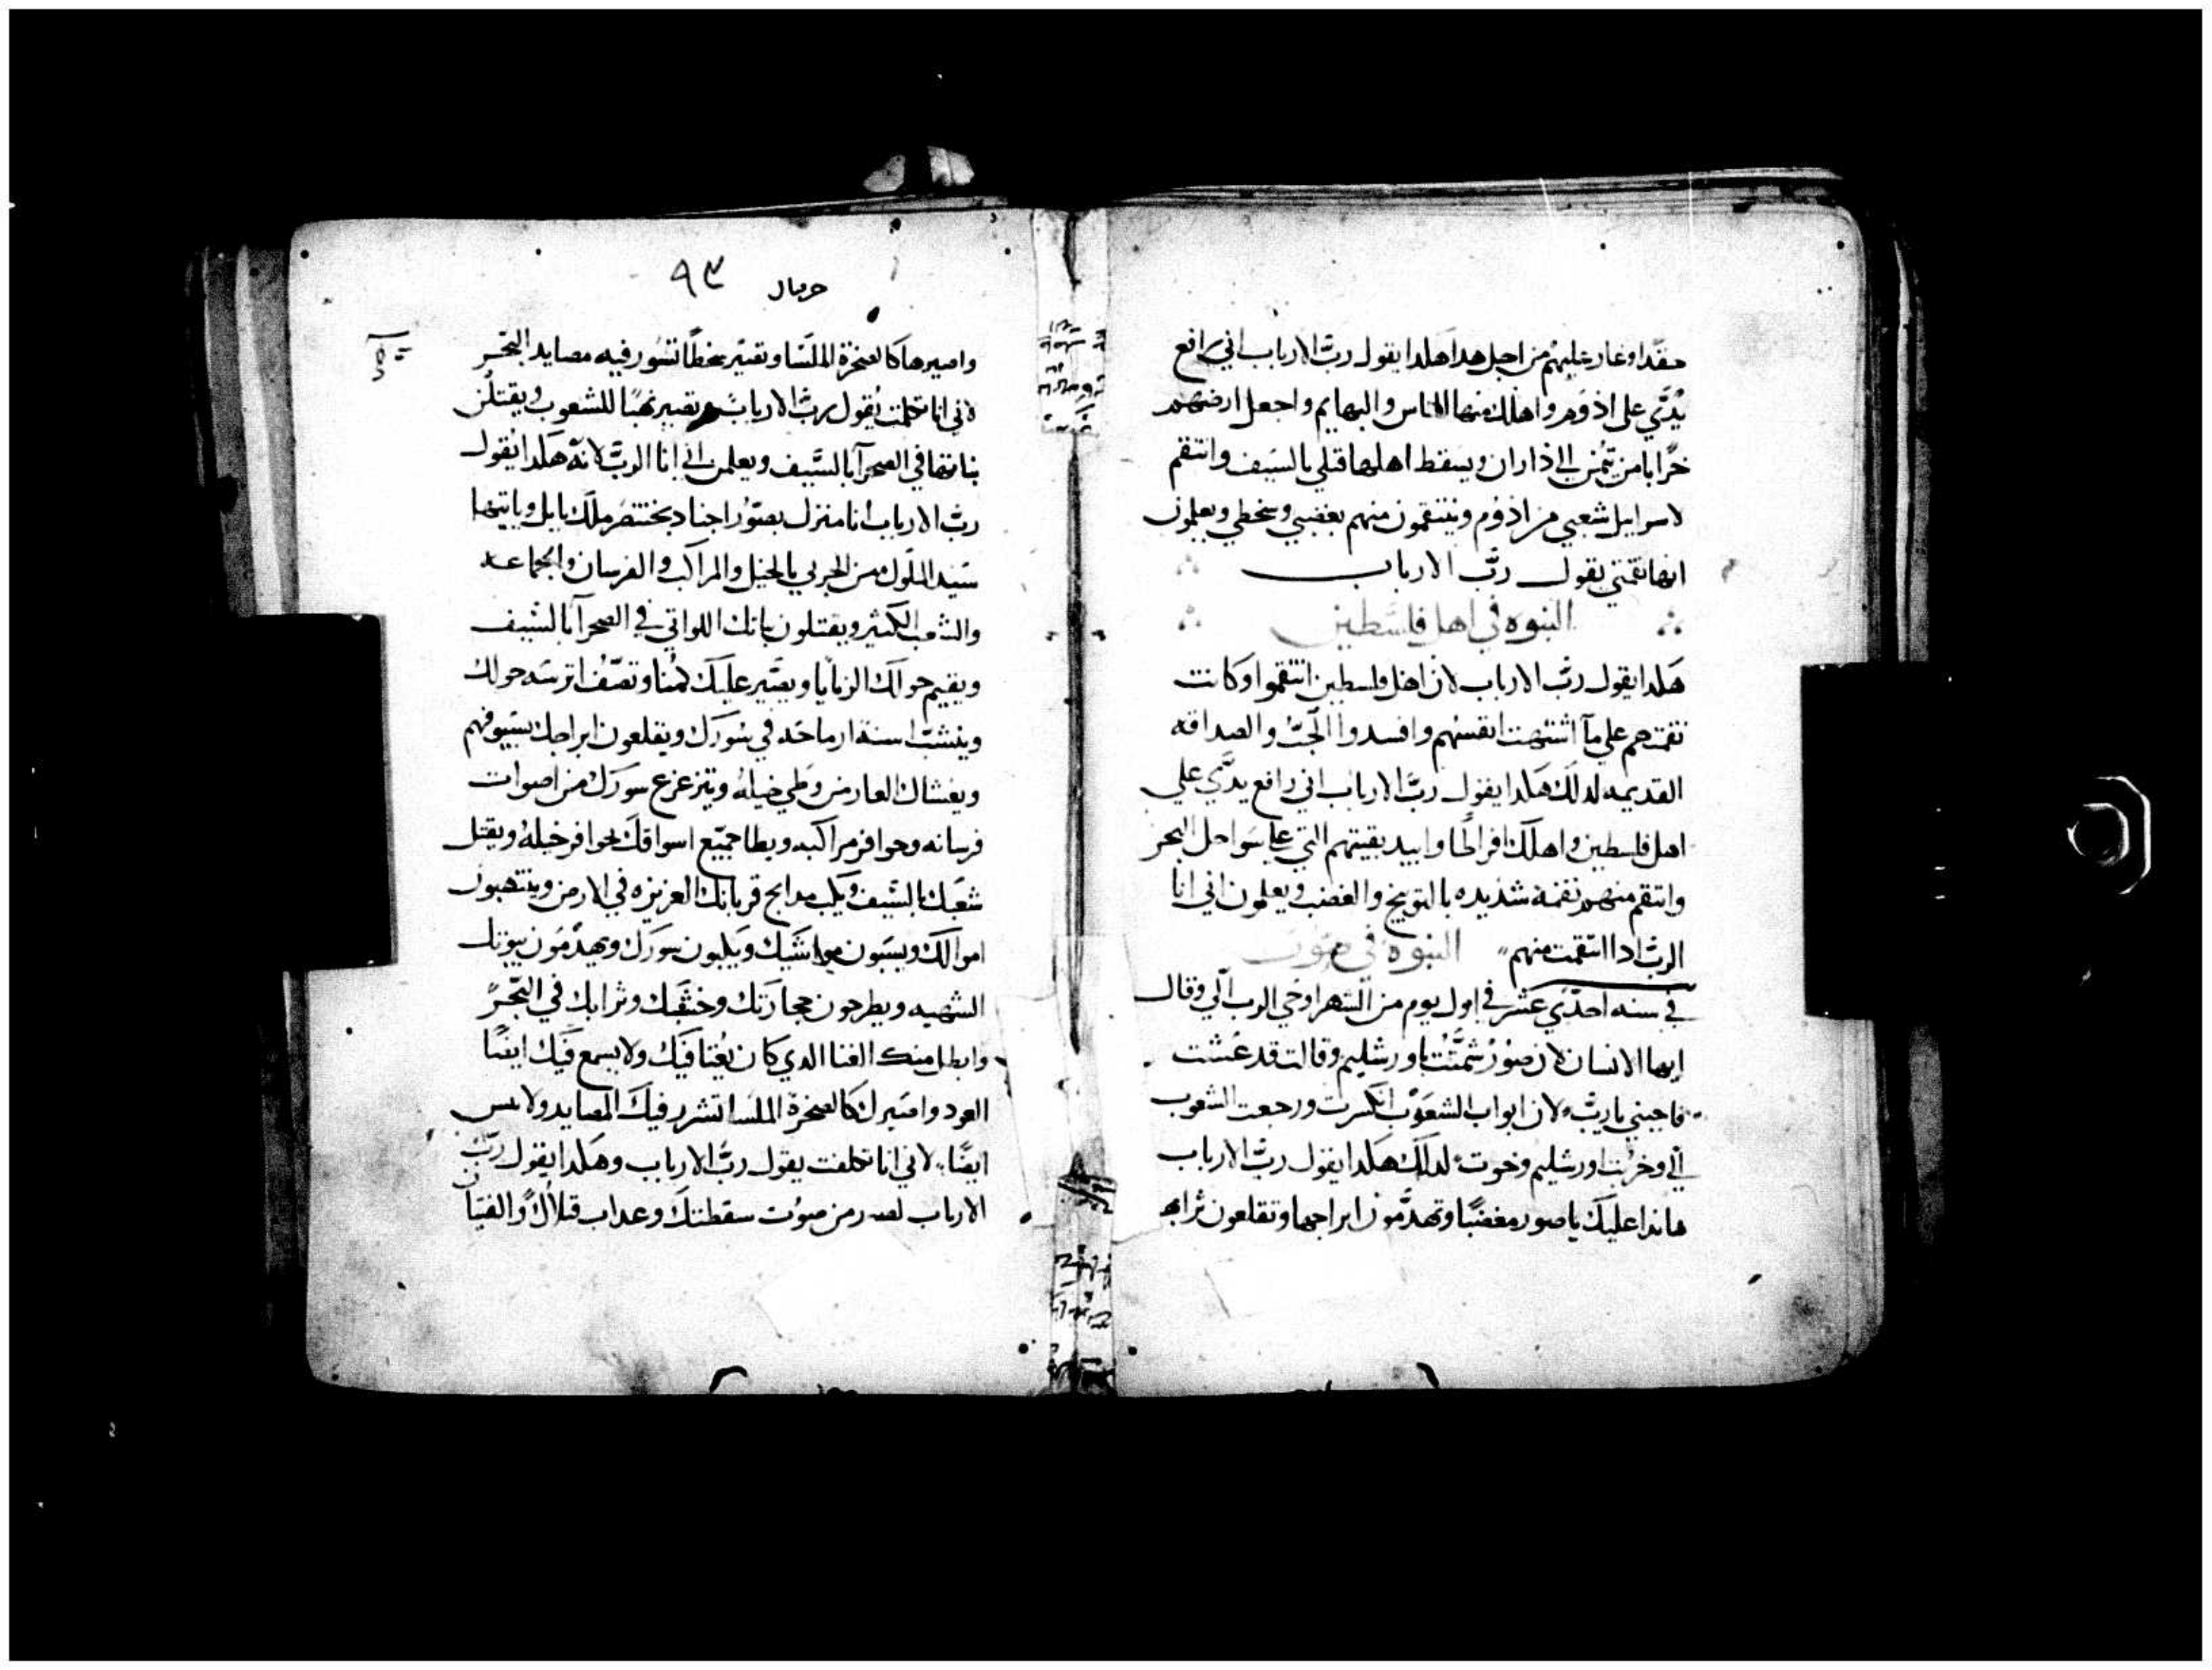 حقدا وغار عليهم من اجل هدا هلدا يقول ربّ الارباب اني رافع
يدي على اذوم واهلك منها الناس والبهايم واجعل ارضهم
خرابا من تيمن الى ذاران ويسقط اهلها قتلي بالسيف وانتقم
لاسرايل شعبي من اذوم وينتقمون منهم بغضبي وسخطي ويعلمون
انها نقمتي يقول ربّ الارباب
النبوه في اهل فلسطين
هلدا يقول ربّ الارباب لان اهل فلسطين انتقموا وكانت
نقمتهم على ما اشتهت انفسهم وافسدوا الحبّ والصداقه
القديمه لدلك هلدا يقول ربّ الارباب اني رافع يدي على
اهل فلسطين واهلك افراطا وابيد بقيتهم التي على سواحل البحر
وانتقم منهم نقمة شديده بالتوبيخ والغضب ويعلمون اني انا
الرب ادا انتقمت منهم النبوة في صور
في سنه احدي عشر في اول يوم من الشهر اوحي الرب الي وقال
ايها الانسان لان صور شمتت باورشليم وقالت قد عشت
فاجيبني يا ربّ لان ابواب الشعوب انكسرت ورجعت الشعوب
الي وخربت اورشليم وخوت لدلك هلدا يقول ربّ الارباب
هاندا عليك يا صور مغضبا وتهدمون ابراجها وتقلعون ترابها
حزقيال ٩٣
واصيرها كالصخرة الملسا وتصير محطا تشور فيه مصايد البحر
لاني انا تكلمت يقول ربّ الارباب وتصير نهبا للشعوب ويقتلن
بناتها في الصحرآ بالسيف ويعلمن اني انا الرب لانه هلدا يقول
ربّ الارباب انا منزل بصور اجناد بختنصر ملك بابل وياتيها
سيد الملوك من الجربي بالخيل والمراكب والفرسان والجماعه
والشعب الكثير ويقتلون بناتك اللواتي في الصحرآ بالسيف
ويقيم حولك الزبايا ويصير عليك كمنا وتصف اترسه حولك
وينشب اسنة ارماحه في سورك ويقلعون ابراجك بسيوفهم
ويغشاك الغبار من وطي خيله ويتزعزع سورك من اصوات
فرسانه وحوافر مراكبه ويطا جميع اسواقك بحوافر خيله ويقتل
شعبك بالسيف ويكب مدابح قربانك العزيزه في الارض وينتهبون
اموالك ويسبون مواشيك ويكبون سورك ويهدمون بيوتك
الشهيه ويطرحون حجارتك وخشبك وترابك في البحر
وابطل منك الغنا الدي كان يغنا فيك ولا يسمع فيك ايضا
العود واصيرك كالصخرة الملسا تشرر فيك المصايد ولا
ايضا لاني انا تكلمت يقول ربّ الارباب وهلدا يقول ربّ
الارباب لصور من صوت سقطتك وعداب قتلاك والفتيان